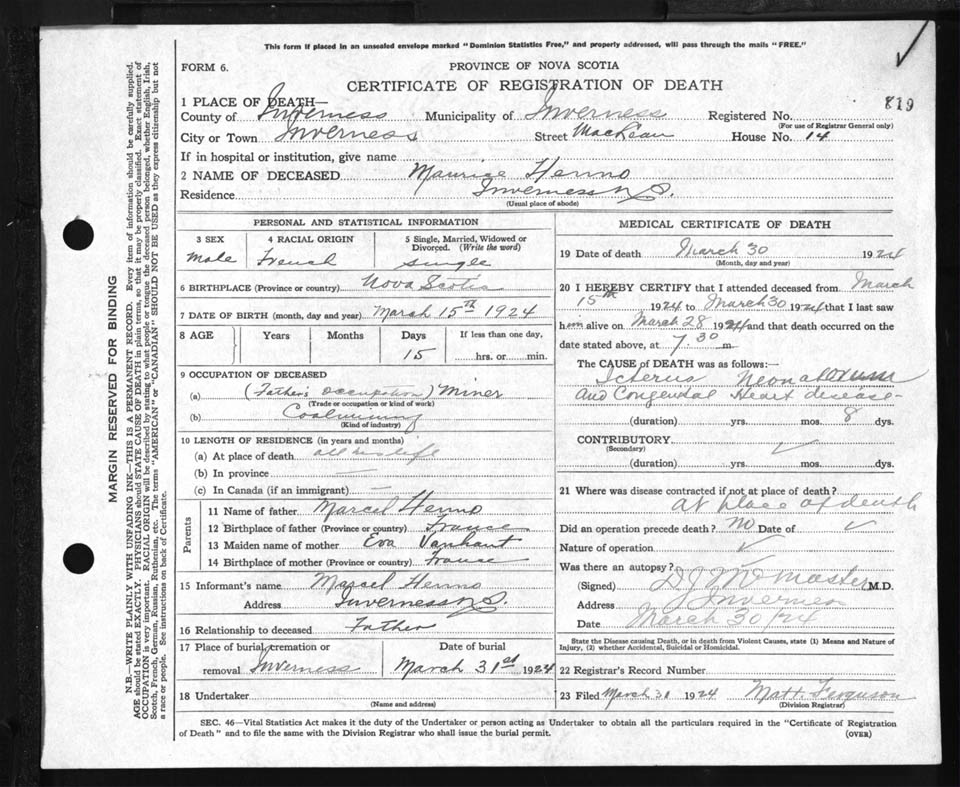 This form if placed in an unsealed envelope marked "Dominion Statistics Free," and properly addressed, will pass through the mails "FREE."
FORM 6.
PROVINCE OF NOVA SCOTIA
CERTIFICATE OF REGISTRATION OF DEATH
819
1 PLACE OF DEATH—
County of Inverness Municipality of Inverness Registered No.
(For use of Registrar General only)
City or Town Inverness Street MacLean House No. 14
If in hospital or institution, give name
2 NAME OF DECEASED Maurice Henno
Residence Inverness N.S.
(Usual place of abode)
PERSONAL AND STATISTICAL INFORMATION
3 SEX 4 RACIAL ORIGIN 5 Single, Married, Widowed or Divorced. (Write the word)
Male French single
6 BIRTHPLACE (Province or country) Nova Scotia
7 DATE OF BIRTH (month, day and year) March 15th 1924
8 AGE Years Months Days If less than one day,
15 hrs. or min.
9 OCCUPATION OF DECEASED
(a) (Father's occupation) Miner
(Trade or occupation or kind of work)
(b) Coalmining
(Kind of industry)
10 LENGTH OF RESIDENCE (in years and months)
(a) At place of death all his life
(b) In province —
(c) In Canada (if an immigrant) —
Parents
11 Name of father Marcel Henno
12 Birthplace of father (Province or country) France
13 Maiden name of mother Eva Vanhant
14 Birthplace of mother (Province or country) France
15 Informant's name Marcel Henno
Address Inverness N.S.
16 Relationship to deceased Father
17 Place of burial, cremation or removal Inverness
Date of burial
March 31st 1924
18 Undertaker
(Name and address)
MEDICAL CERTIFICATE OF DEATH
19 Date of death March 30 1924
(Month, day and year)
20 I HEREBY CERTIFY that I attended deceased from March
15th 1924 to March 30 1924 that I last saw
him alive on March 28 1924 and that death occurred on the
date stated above, at 7.30 m.
The CAUSE OF DEATH was as follows:
Icterus Neonatorum
and Congenital Heart disease-
(duration) yrs. mos. 8 dys.
CONTRIBUTORY
(Secondary)
(duration) yrs. mos. dys.
21 Where was disease contracted if not at place of death?
At place of death
Did an operation precede death? No Date of
Nature of operation
Was there an autopsy?
(Signed) D J McMaster M.D.
Address Inverness
Date March 30/24
State the Disease causing Death, or in death from Violent Causes, state (1) Means and Nature of
Injury, (2) whether Accidental, Suicidal or Homicidal.
22 Registrar's Record Number
23 Filed March 31 1924 Matt. Ferguson
(Division Registrar)
SEC. 46—Vital Statistics Act makes it the duty of the Undertaker or person acting as Undertaker to obtain all the particulars required in the "Certificate of Registration
of Death" and to file the same with the Division Registrar who shall issue the burial permit.
(OVER)
MARGIN RESERVED FOR BINDING
N.B.—WRITE PLAINLY WITH UNFADING INK—THIS IS A PERMANENT RECORD. Every item of information should be carefully supplied.
AGE should be stated EXACTLY. PHYSICIANS should STATE CAUSE OF DEATH in plain terms, so that it may be properly classified. Exact statement of
OCCUPATION is very important. RACIAL ORIGIN will be described by stating to what people or tongue the deceased person belonged, whether English, Irish,
Scotch, French, German, Russian, Ruthenian, etc. The terms "AMERICAN" or "CANADIAN" SHOULD NOT BE USED as they express citizenship but not
a race or people. See instructions on back of Certificate.